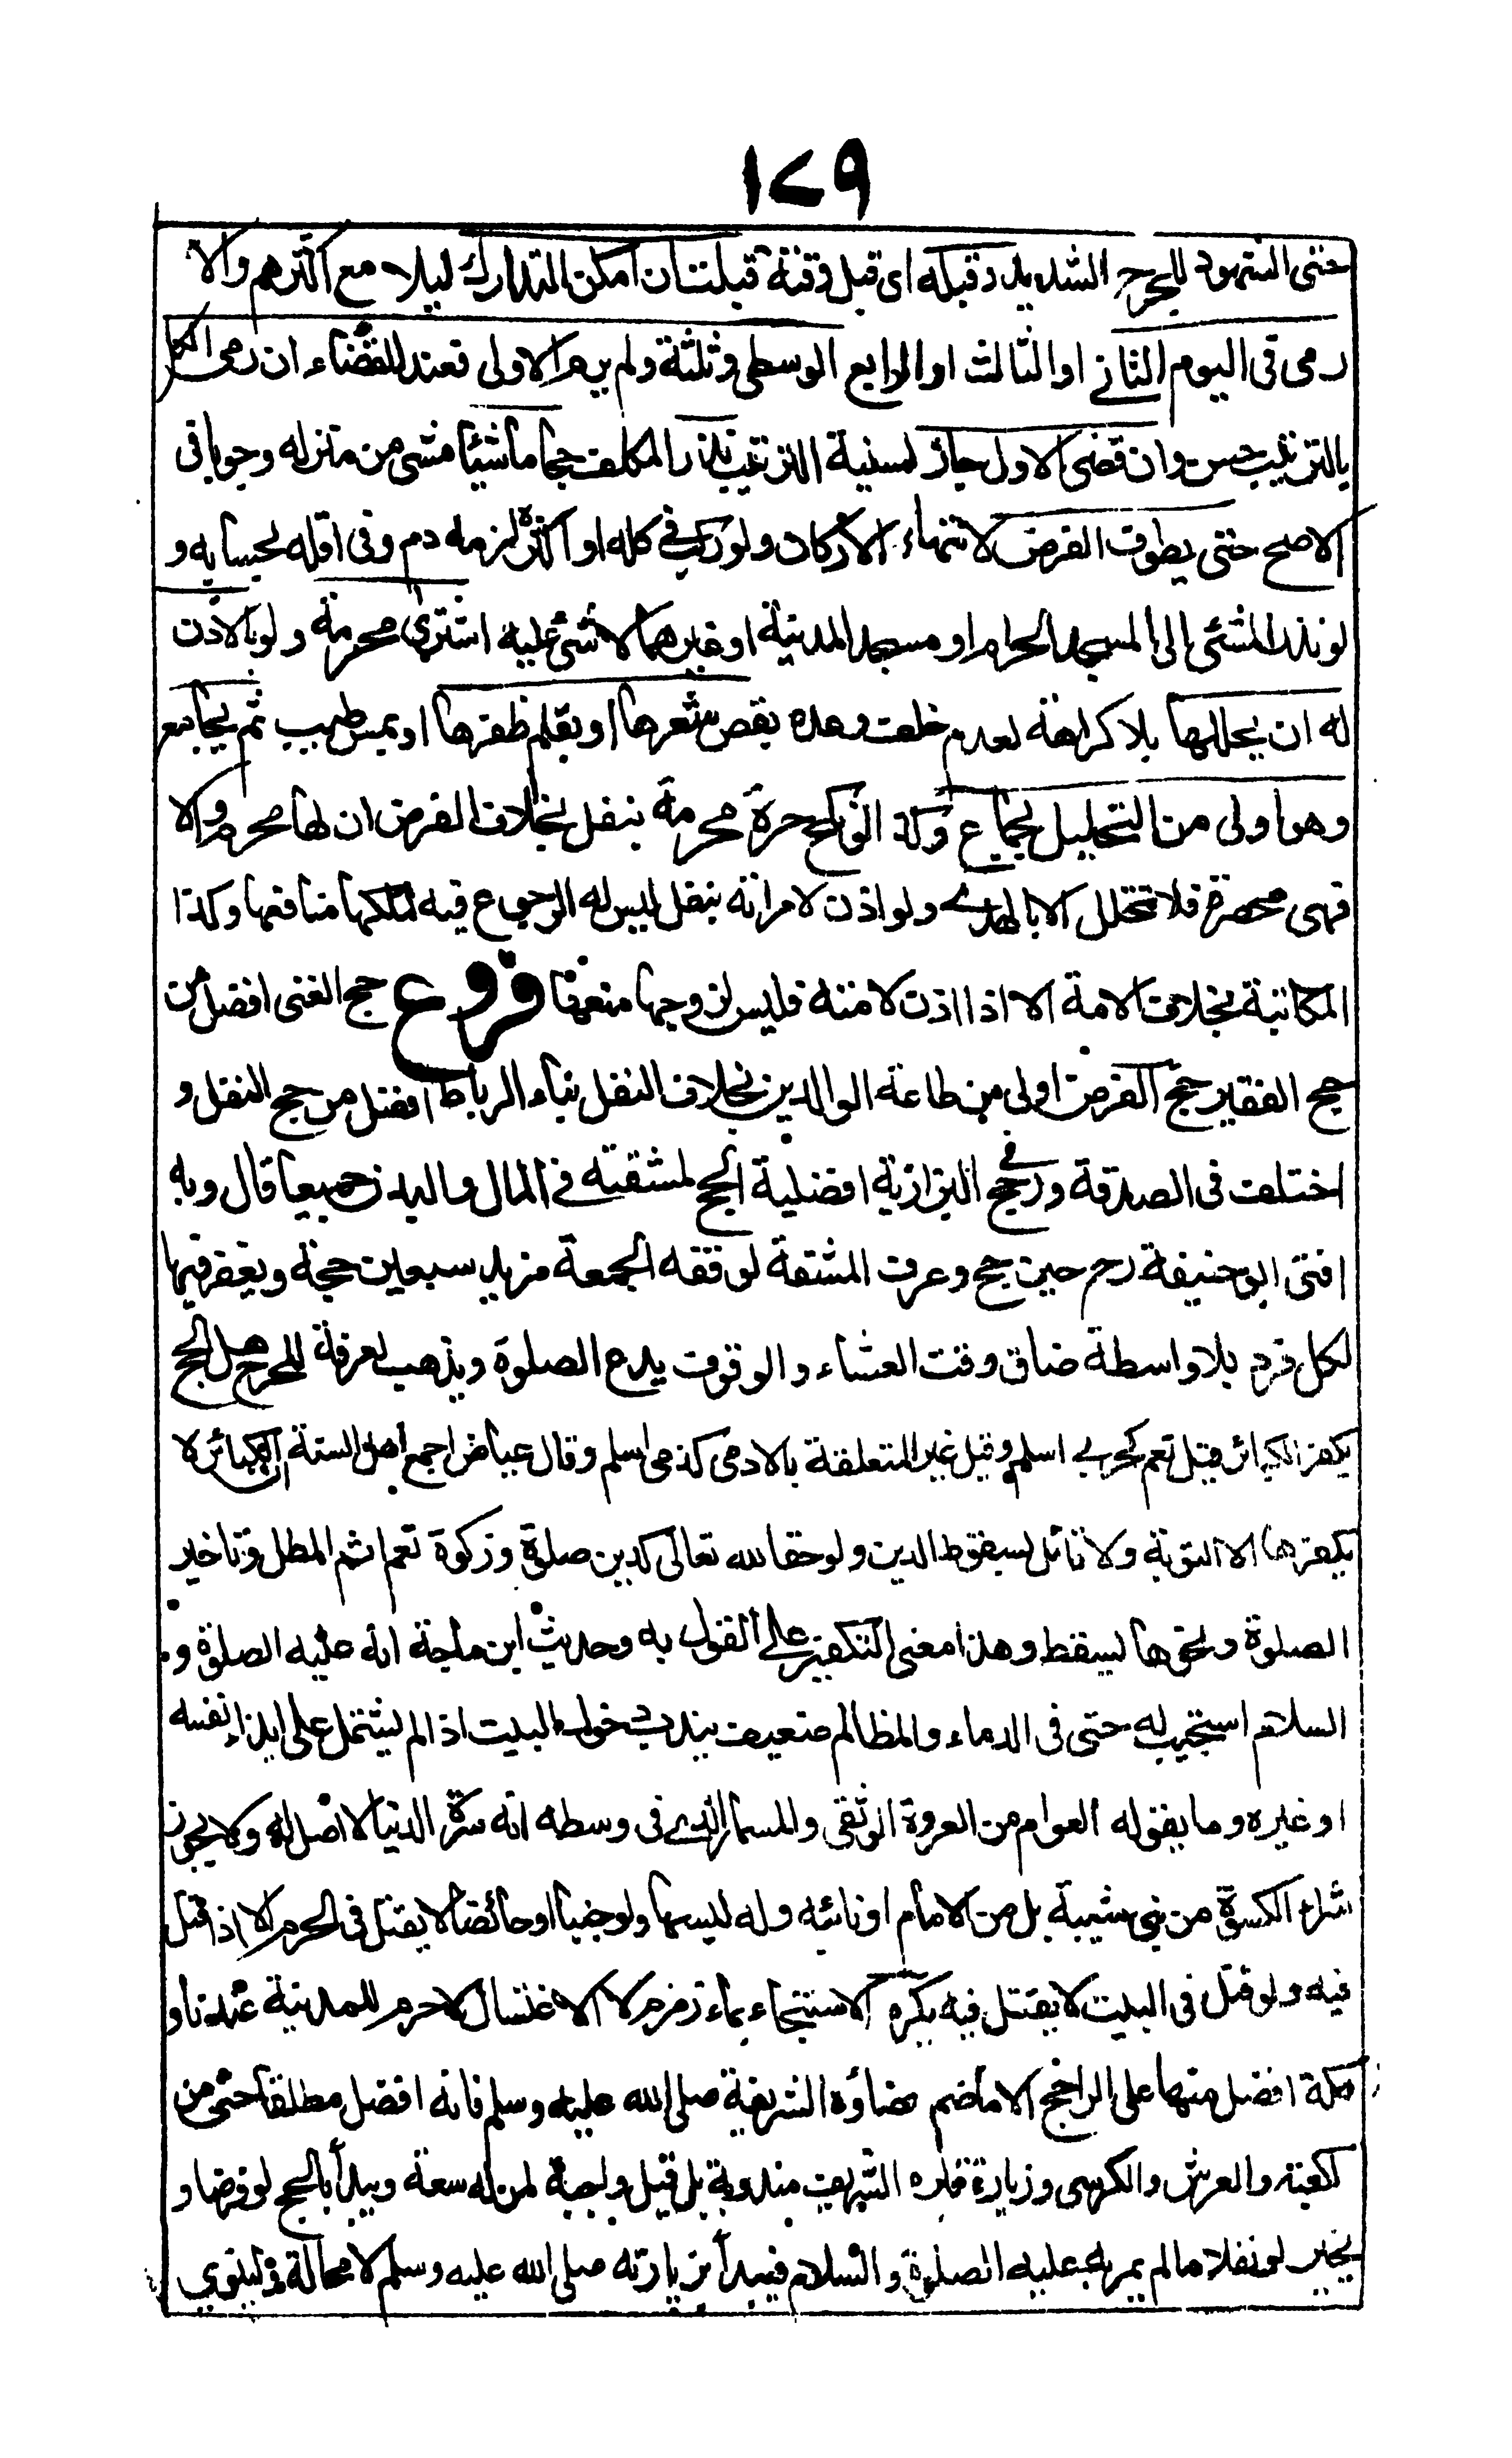 ١٧٩
حتى الشهود للحرج الشديد وقبله اى قبل وقته قبلت ان امكن التدارك ليلا مع اكثرهم والا
رمى فى اليوم الثانى او الثالث او الرابع الوسطى وثلثة ولم يرم الاولى فعند القضاء ان رمى الكل
بالترتيب حسن وان قضى الاول جاز لسنية الترتيب نذر المكلف حجا ماشيا مشى من منزله وجوبا فى
الاصح حتى يطوف الفرض لانتهاء الاركان ولو ركب فى كله او اكثره لزمه دم وفى اقله بحسابه و
لو نذر المشى الى المسجد الحرام او مسجد المدينة او غيرهما لا شئ عليه اشترى محرمة ولو بالاذن
له ان يحللها بلا كراهة لعدم خلف وعده بقص شعرها او بقلم ظفرها او بمس طيب ثم يجامع
وهو اولى من التحليل بجماع وكذا لو نكح حرة محرمة بنفل بخلاف الفرض ان لها محرم والا
فهى محصرة فلا تتحلل الا بالهدى ولو اذن لامراته بنفل ليس له الرجوع فيه لملكها منافعها وكذا
المكاتبة بخلاف الامة الا اذا اذن لامته فليس لزوجها منعها فروع حج الغنى افضل من
حج الفقير حج الفرض اولى من طاعة الوالدين بخلاف النفل بناء الرباط افضل من حج النفل و
اختلف فى الصدقة ورجح فى البزازية افضلية الحج لمشقته فى المال والبدن جميعا قال وبه
افتى ابو حنيفة رح حين حج وعرف المشقة لوقفه الجمعة مزيد سبعين حجة ويغفر فيها
لكل فرد بلا واسطة ضاق وقت العشاء والوقوف يدع الصلوة ويذهب لعرفة للحرج هل الحج
يكفر الكبائر قيل نعم كحربى اسلم وقيل غير المتعلقة بالادمى كذمى اسلم وقال عياض اجمع اهل السنة ان الكبائر لا
يكفرها الا التوبة ولا قائل بسقوط الدين ولو حقا لله تعالى كدين صلوة وزكوة نعم اثم المطل وتاخير
الصلوة ونحوها يسقط وهذا معنى التكفير على القول به وحديث ابن ماجة انه عليه الصلوة و
السلام استجيب له حتى فى الدماء والمظالم ضعيف يندب دخول البيت اذا لم يشتمل على ايذاء نفسه
او غيره وما يقوله العوام من العروة الوثقى والمسمار الذى فى وسطه انه سرة الدنيا لا اصل له ولا يجوز
شراء الكسوة من بنى شيبة بل من الامام او نائبه وله لبسها ولو جنبا او حائضا لا يقتل فى الحرم الا اذا قتل
فيه ولو قتل فى البيت لا يقتل فيه يكره الاستنجاء بماء زمزم لا الاغتسال لا حرم للمدينة عندنا و
مكة افضل منها على الراجح الا ما ضم اعضاؤه الشريفة صلى الله عليه وسلم فانه افضل مطلقا حتى من
الكعبة والعرش والكرسى وزيارة قبره الشريف مندوبة بل قيل واجبة لمن له سعة ويبدأ بالحج لو فرضا و
يخير لو نفلا ما لم يمر به عليه الصلوة والسلام فيبدأ بزيارته صلى الله عليه وسلم لا محالة ولينوى